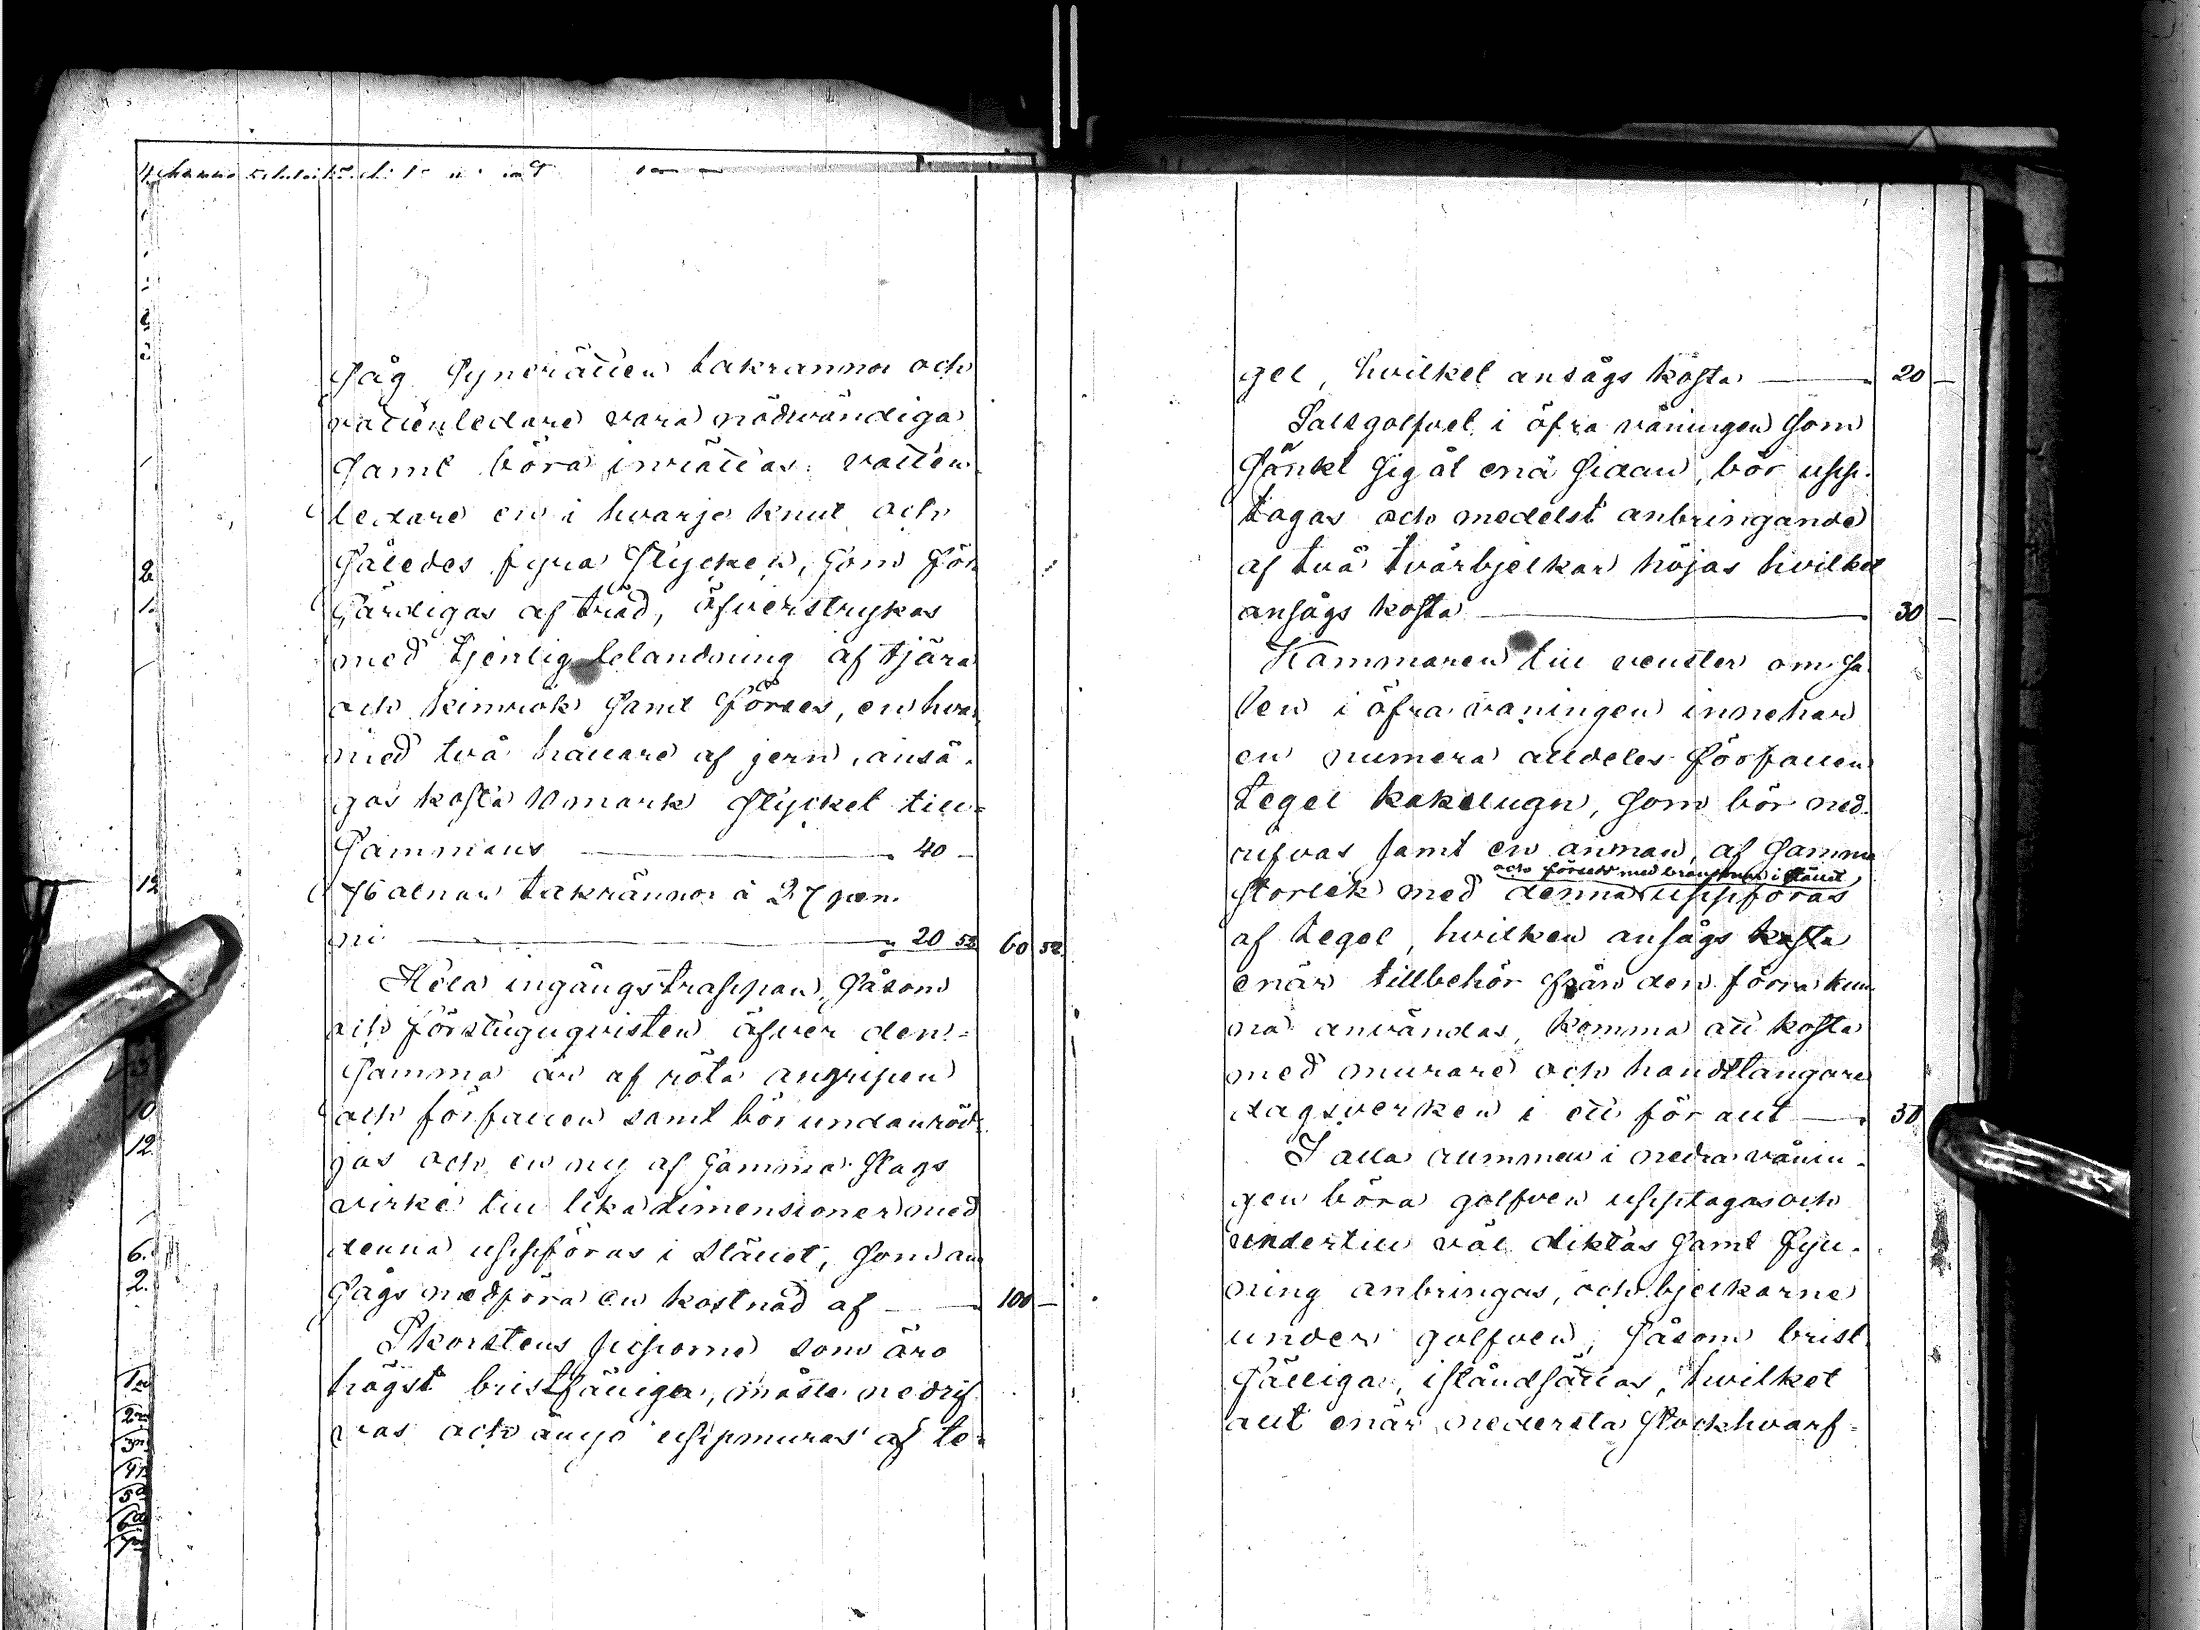 såg Synerätten takrännor och
vattenledare vara nödvändiga
samt böra inrättas. vatten
ledare en i hvarje knut och
således fyra stycken, som för
färdigas af träd, öfverstrykas
med tjenlig blandning af tjära
och kimrök samt förses, en hvar
med två hållare af jern, anså-
gos kosta 10 mark stycket till-
sammans — 40 —
76 alnar takrännor à 27 pen-
ni — 20 52 60 52
Hela ingångstrappan, såsom
och förstuguqvisten öfver den-
samma är af röta angripen
och förfallen samt bör undanröd-
jas och en ny af samma slags
virke till lika dimensioner med
denna uppföras i stället, som an
sågs medföra en kostnad af — 100 —
Skorstens piporna som äro
högst bristfälliga, måste nedrif
vas och ånyo uppmuras af te-
gel, hvilket ansågs kosta — 20 —
Salsgolfvet i öfra våningen som
sänkt sig åt ena sidan, bör upp-
tagas och medelst anbringande
af två tvärbjelkar höjas hvilket
ansågs kosta — 30 —
Kammaren till venster om sa
len i öfra våningen innehar
en numera alldeles förfallen
tegel kakelugn, som bör ned-
rifvas samt en annan, af samma
och försedd med i stället
storlek med denna uppföras
af tegel, hvilken ansågs kosta
enär tillbehör från den förra kun
na användas, komma att kosta
med murare och handtlangare
dagsverken i ett för allt — 50
I alla rummen i nedra vånin-
gen böra golfven upptagas och
undertill väl diktas samt fyll-
ning anbringas, och bjelkarne
under golfven, såsom brist
fälliga, iståndsättas, hvilket
allt enär nedersta stockhvarf-